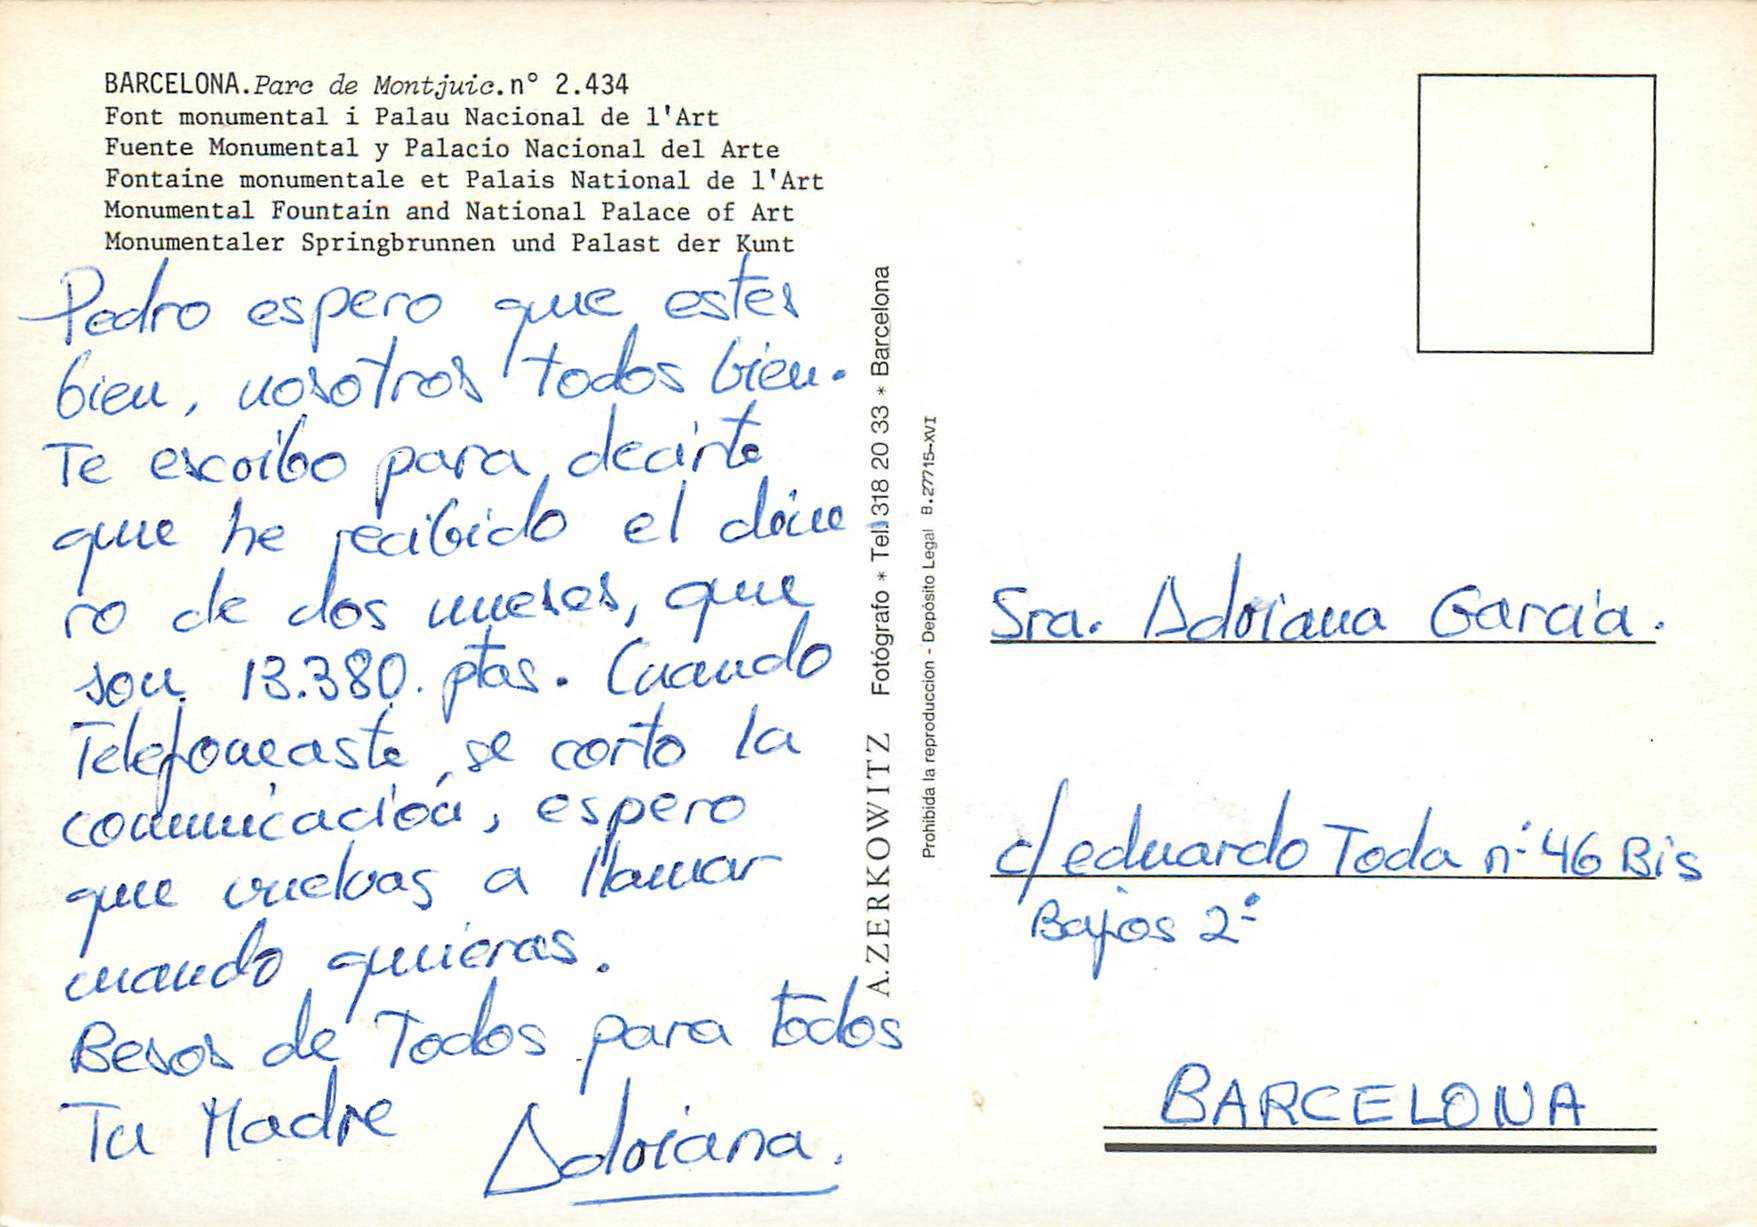 BARCELONA. Parc de Montjuic. n° 2.434
Font monumental i Palau Nacional de l'Art
Fuente Monumental y Palacio Nacional del Arte
Fontaine monumentale et Palais National de l'Art
Monumental Fountain and National Palace of Art
Monumentaler Springbrunnen und Palast der Kunt
Pedro espero que estes
bien, nosotros todos bien.
Te escribo para decirte
que he recibido el dine
ro de dos meses, que
son 13.380. ptas. Cuando
Telefoneaste, se corto la
comunicación, espero
que vuelvas a llamar
cuando quieras.
Besos de Todos para todos
Tu Madre
Adriana.
A. ZERKOWITZ Fotógrafo * Tel. 318 20 33 * Barcelona
Prohibida la reproduccion - Depósito Legal B. 27715-XVI
Sra. Adriana Garcia.
c/ eduardo Toda nº 46 Bis
Bajos 2º
BARCELONA